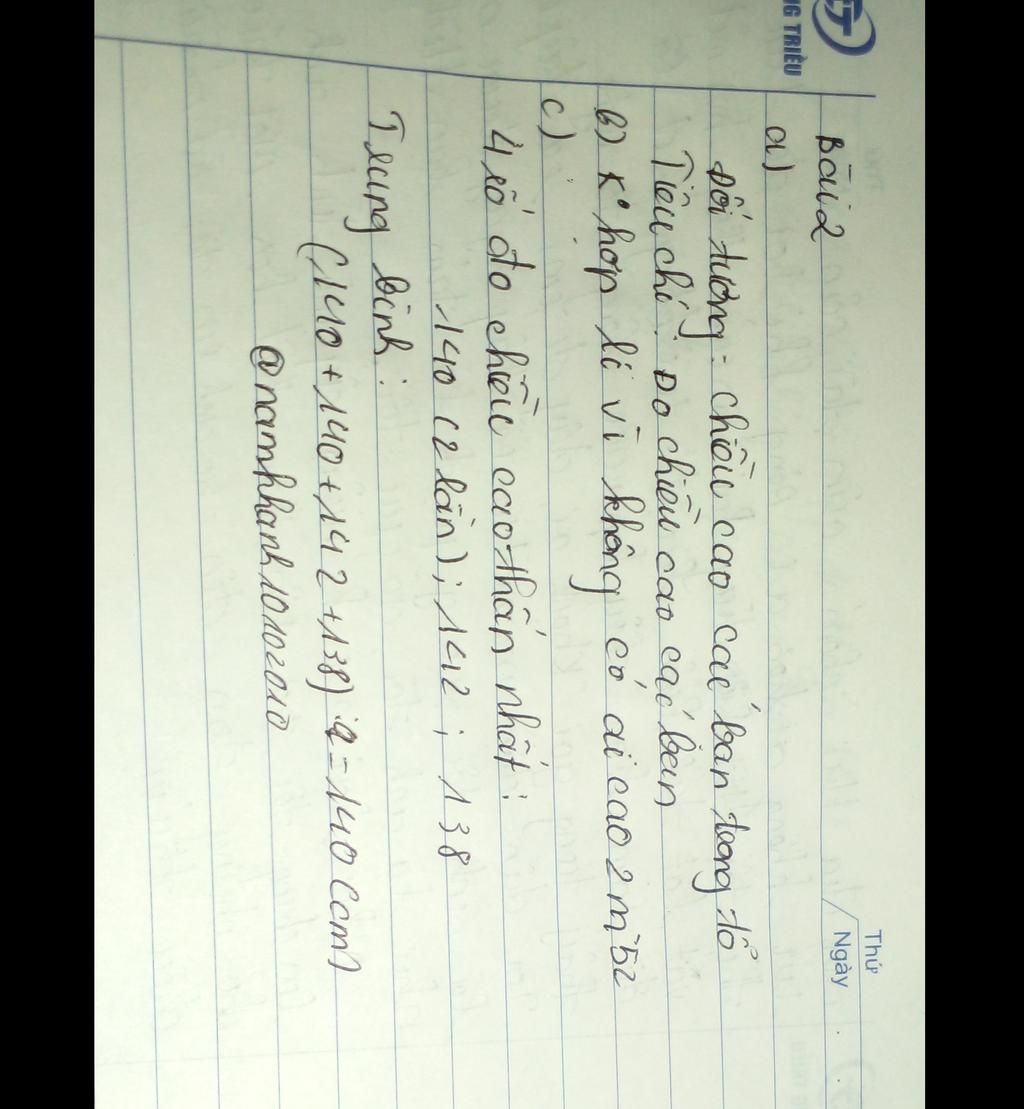 NG TRIỀU
Thứ
Ngày
Bài 2
a)
Đối tương: chiều cao các bạn trong tổ
Tiêu chí: Đo chiều cao các bạn
b) K° hợp lí vì không có ai cao 2m52
c)
4 số đo chiều cao thấn nhất:
140 (2 lần); 142; 138
Trung bình:
(140+140+142+138):4=140(cm)
@namkhanh10102010